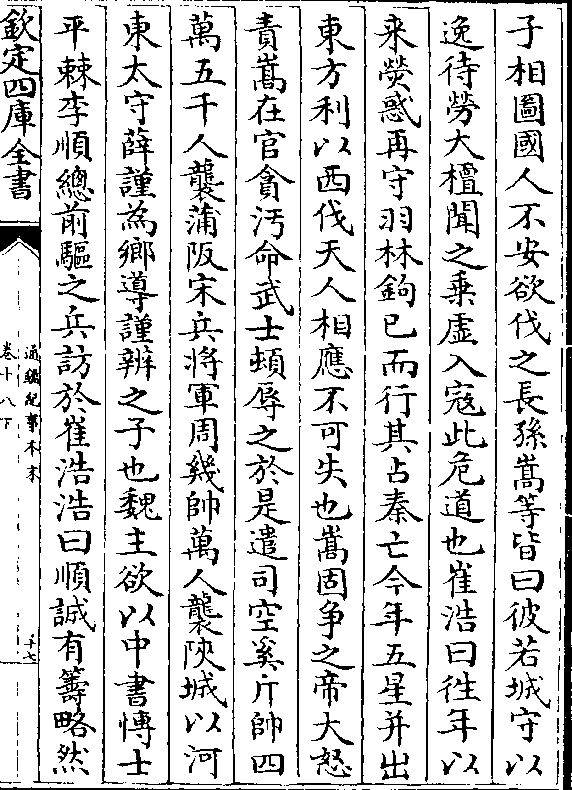 子相圖國人不安欲伐之長孫嵩等皆曰彼若城守以
逸待勞大檀聞之乗虚入寇此危道也崔浩曰徃年以
来熒惑再守羽林鉤已而行其占秦亡今年五星并出
東方利以西伐天人相應不可失也嵩固争之帝大怒
責嵩在官貪汚命武士頓辱之於是遣司空奚斤帥四
萬五千人襲蒲阪宋兵將軍周幾帥萬人襲陜城以河
東太守薛謹為鄉導謹辨之子也魏主欲以中書愽士
平棘李順總前驅之兵訪於崔浩浩曰順誠有籌略然
欽定四庫全書
通鑑紀事本末
卷十八下